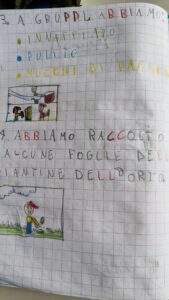 3. A GRUPPI ABBIAMO:
• INNAFFIATO
• PULITO
4. ABBIAMO RACCOLTO
ALCUNE FOGLIE DELLE
PIANTINE DELL'ORTO